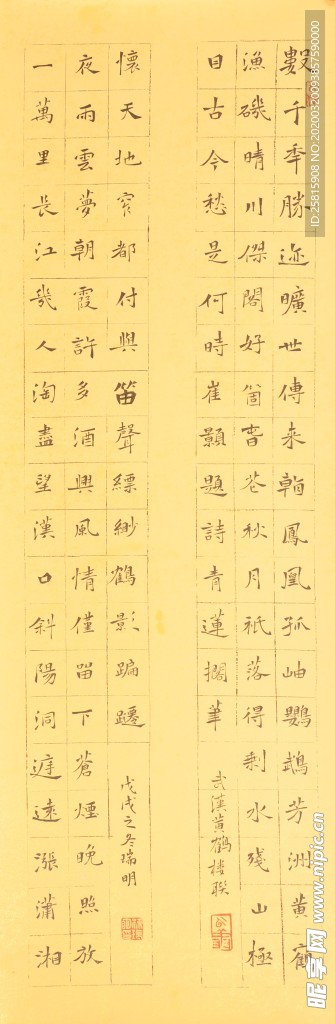 數千秊勝迹曠世傳來看鳳凰孤岫鸚鵡芳洲黃鶴
漁磯晴川傑閣好箇旾花秋月祇落得剩水殘山極
目古今愁是何時崔顥題詩青蓮擱筆
武漢黃鶴樓聯
一萬里長江幾人淘盡望漢口斜陽洞庭遠漲瀟湘
夜雨雲夢朝霞許多酒興風情僅畱下蒼煙晚照放
懷天地窄都付與笛聲縹緲鶴影蹁躚
戊戌之冬瑞明
ID:25815908 NO:20200320093857590000
昵享网 www.nipic.cn